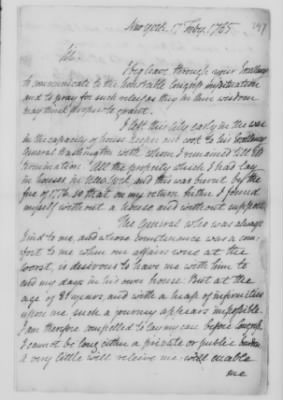 New York 17 Feby. 1785
Sir.
I beg leave through your Excellency
to communicate to the honorable Congress my situation
and to pray for such relief as they in their wisdom
may think proper to grant.
I left this city early in the war
in the capacity of house keeper and cook to his Excellency
General Washington with whom I remained till its
termination. All the property which I had lay
in houses in New York and this was burned by the
fire of 1776 so that on my return hither I found
myself without a house and without support.
The General who was always
kind to me, and whose countenance was a com-
fort to me when our affairs were at the
worst, is desirous to have me with him to
end my days in his own house. But at the
age of 81 years, and with a heap of infirmities
upon me such a journey appears impossible.
I am therefore compelled to lay my case before Congress.
I cannot be long either a private or public burden
a very little will relieve me will enable
me